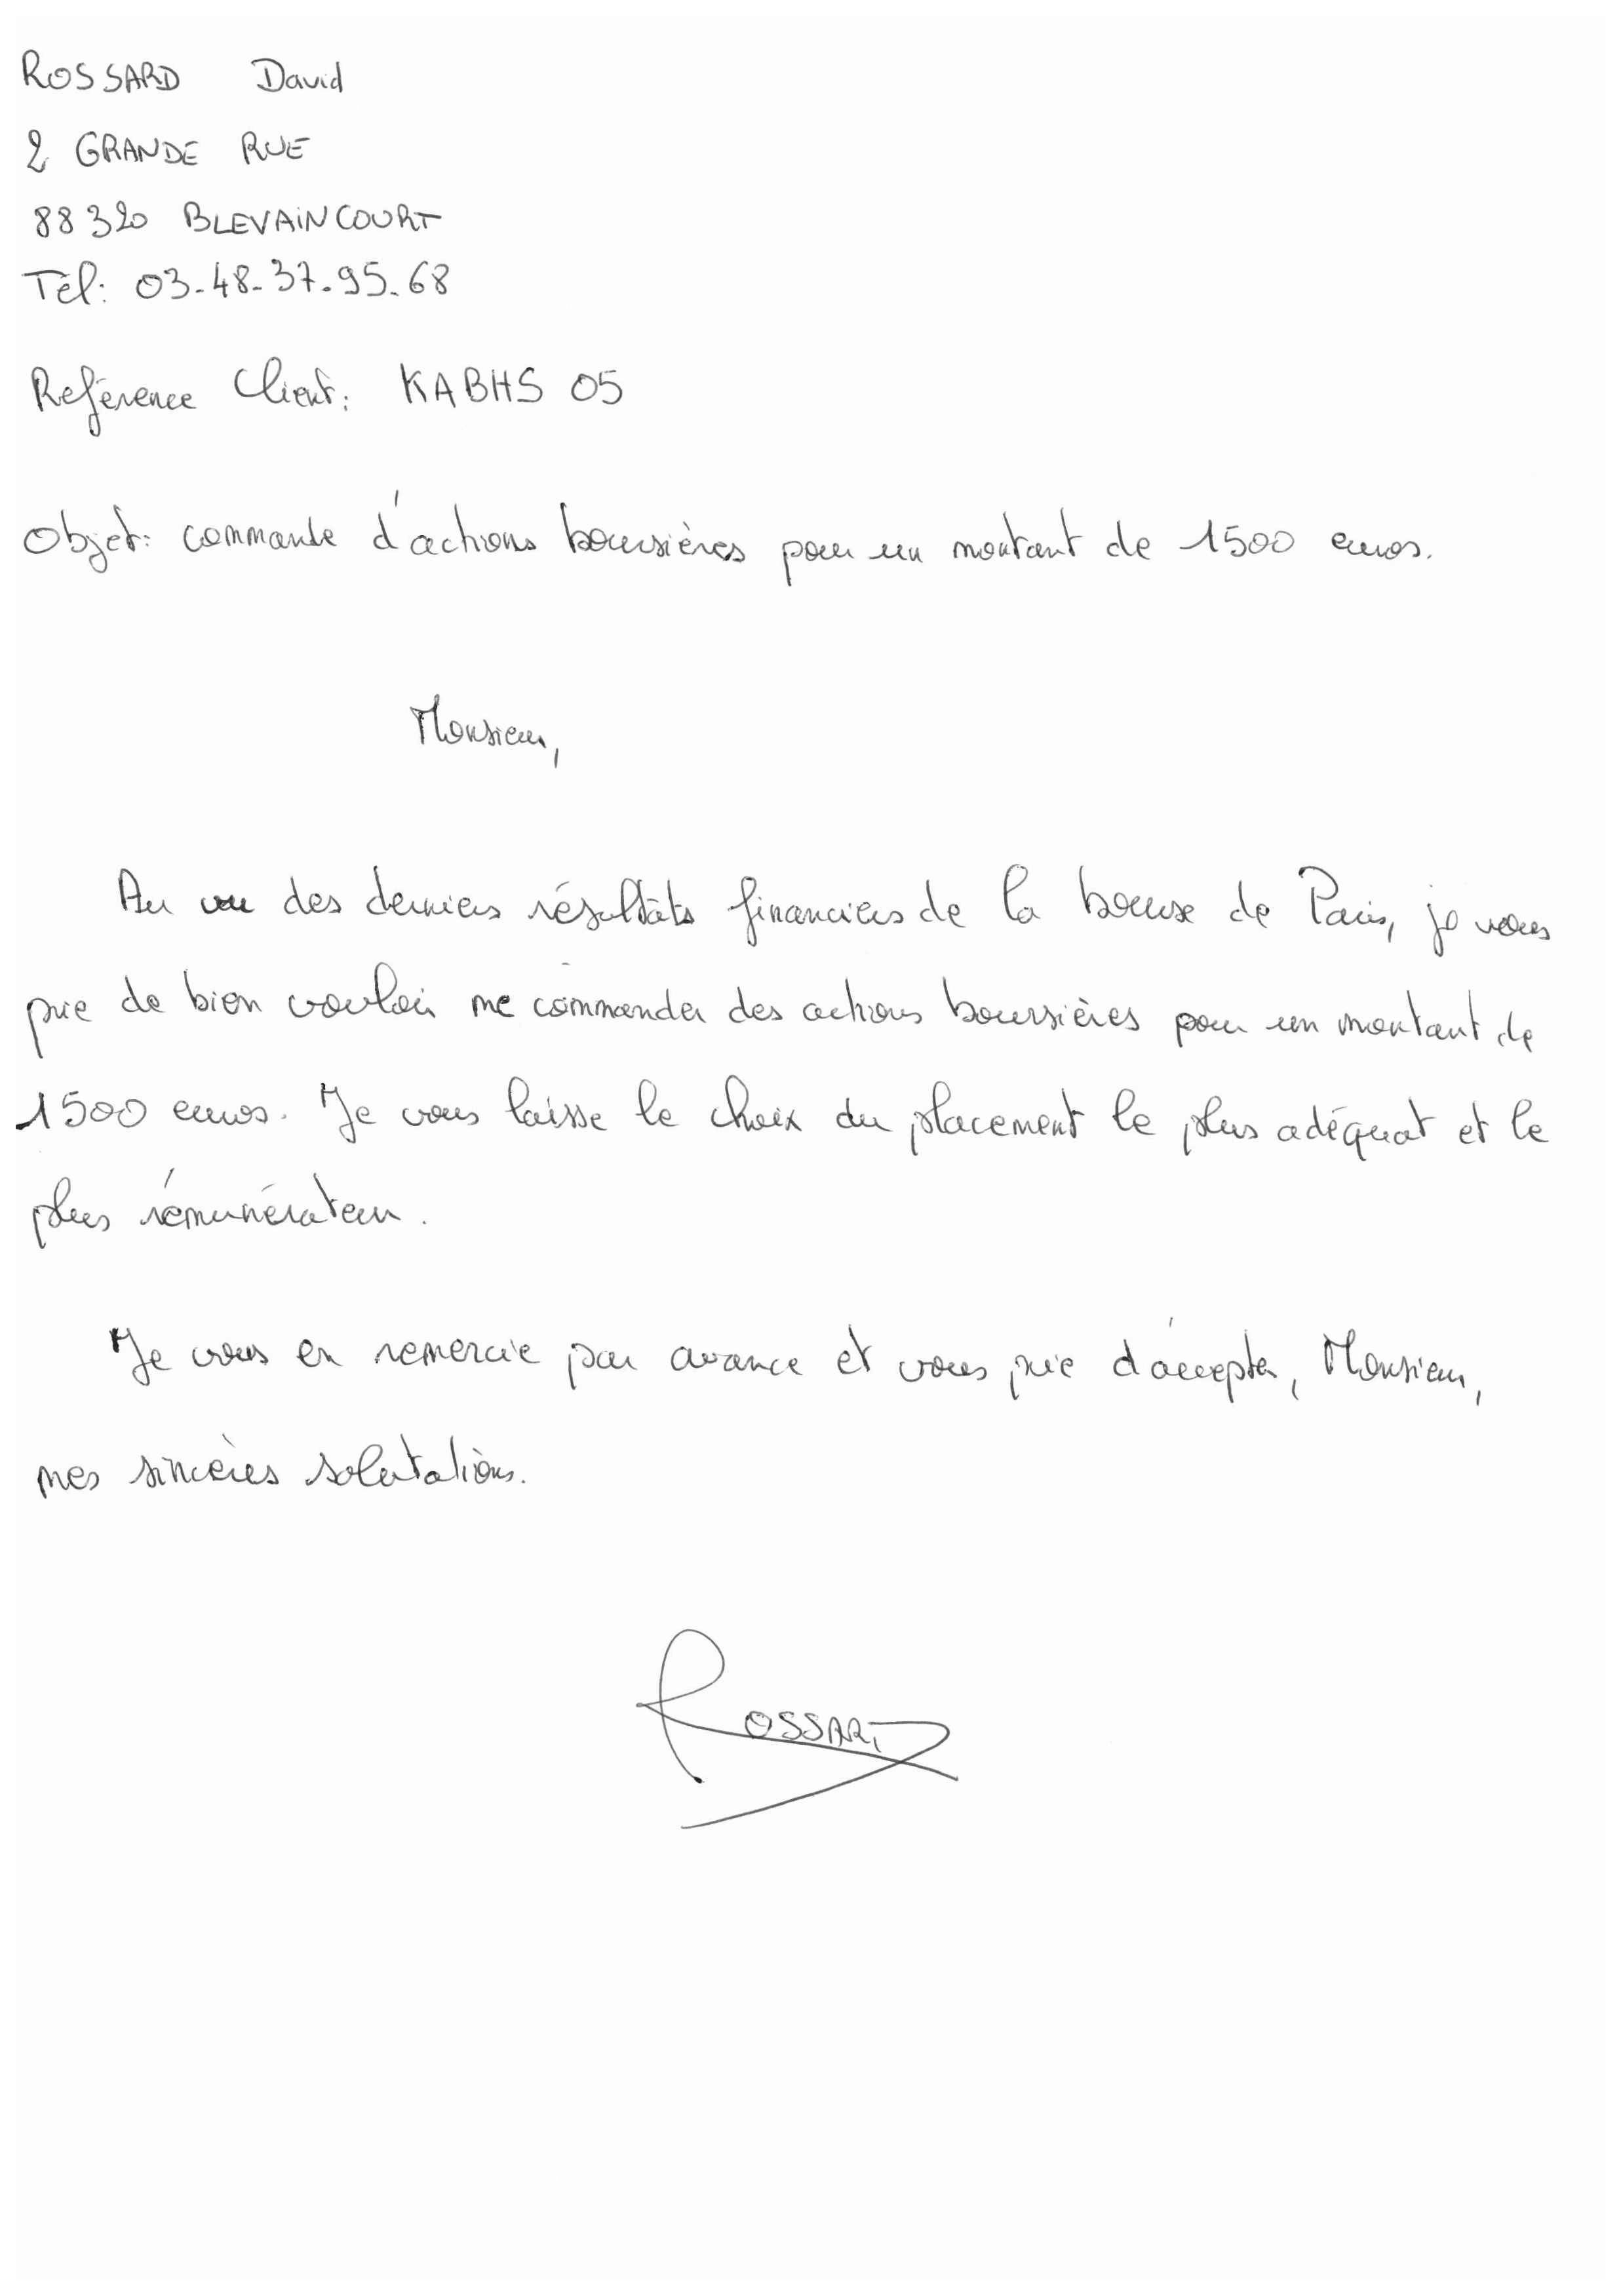 ROSSARD David
2 GRANDE RUE
88320 BLEVAINCOURT
Tél: 03-48-37-95-68
Reférence Client: KABHS 05
Objet: commande d'actions boursières pour un montant de 1500 euros.
Monsieur,
Au vu des derniers résultats financiers de la bourse de Paris, je vous
prie de bien vouloir me commander des actions boursières pour un montant de
1500 euros. Je vous laisse le choix du placement le plus adéquat et le
plus rémunérateur.
Je vous en remercie par avance et vous prie d'accepter, Monsieur,
mes sincères salutations.
ROSSARD